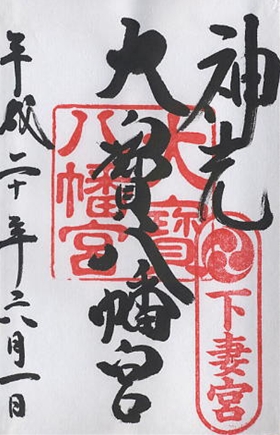 神光
下妻宮
大寶八幡宮
大寶
八幡宮
平成二十年六月一日